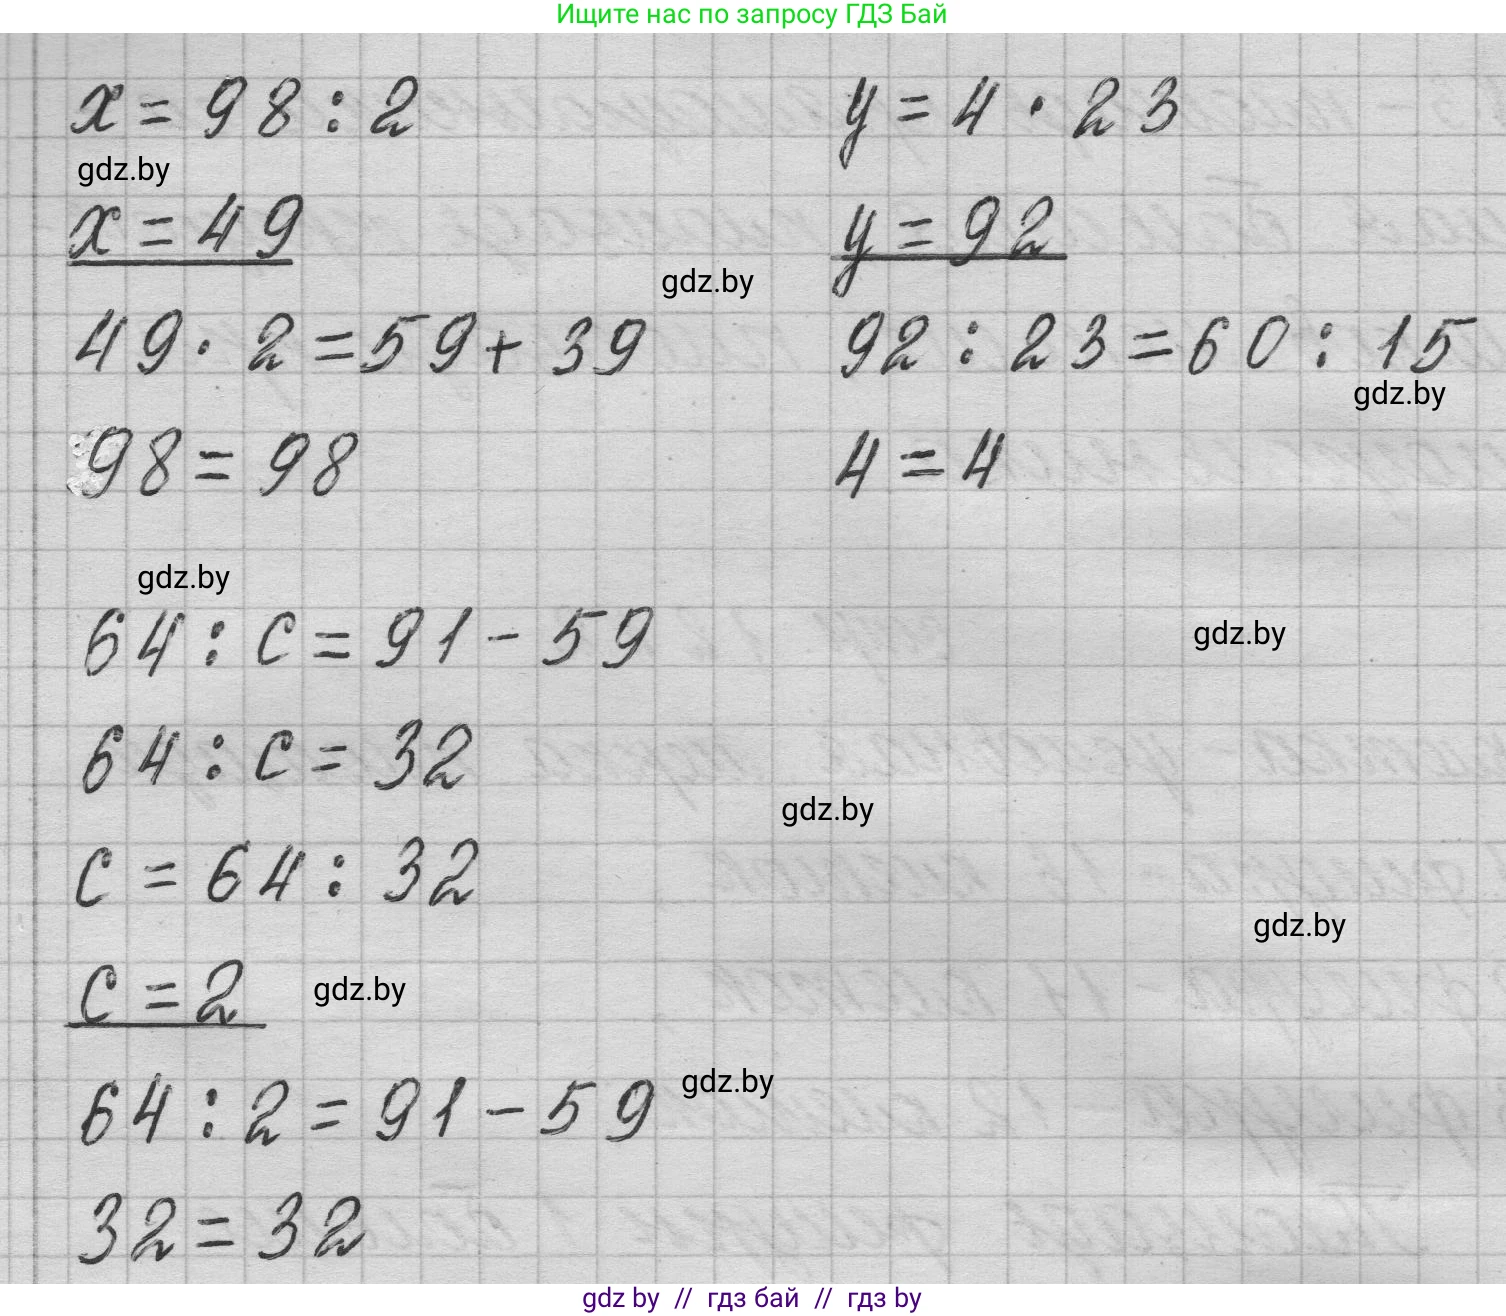 Ищите нас по запросу ГДЗ Бай
x = 98 : 2
y = 4 · 23
gdz.by
x = 49
y = 92
gdz.by
49 · 2 = 59 + 39
92 : 23 = 60 : 15
gdz.by
98 = 98
4 = 4
gdz.by
64 : c = 91 - 59
gdz.by
64 : c = 32
gdz.by
c = 64 : 32
gdz.by
c = 2
gdz.by
gdz.by
64 : 2 = 91 - 59
32 = 32
gdz by // гдз бай // гдз by